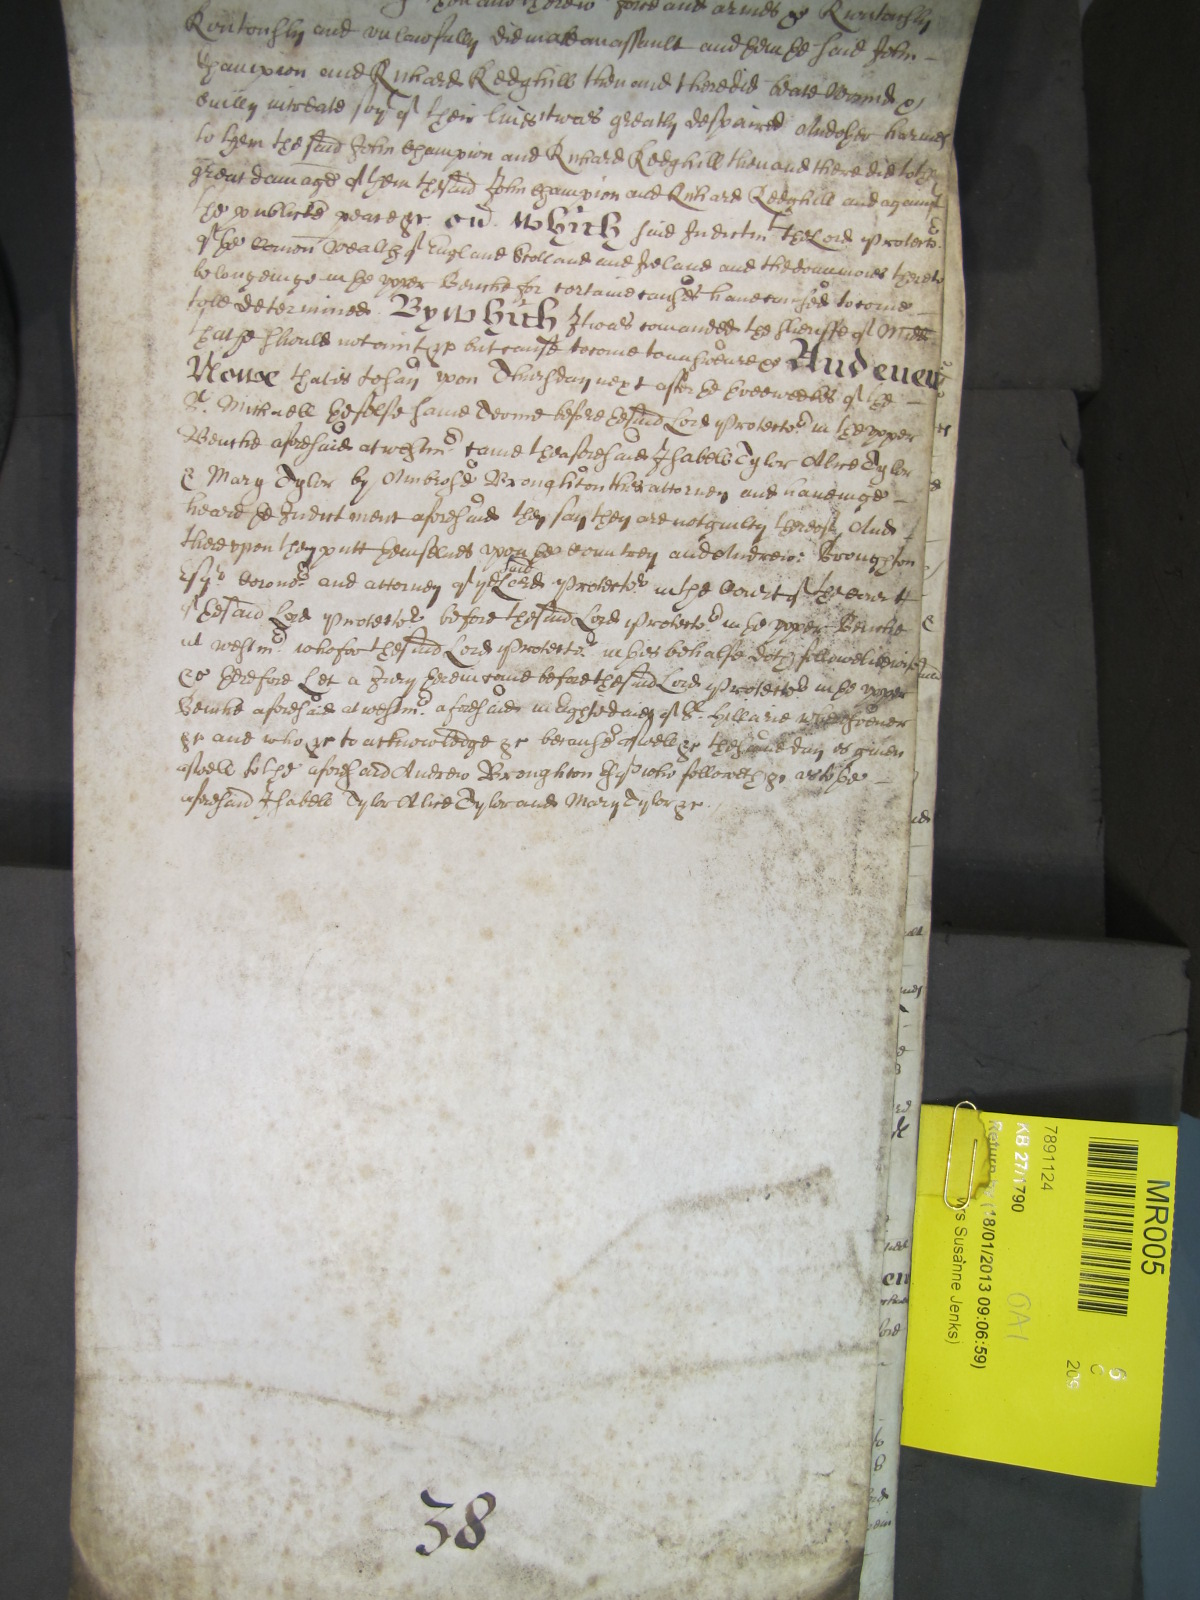 then and there w force and armes &c Riotously
Riotously and vnlawfully did make an assault and them the said John
Champion and Richard Kedghill then and there did beate wound &
evilly intreate soe yt of their lives itwas greatly despaired And other harmes
to them the said John Champion and Richard Kedghill then and there did to the
great damage of them the said John Champion and Richard Kedghill and against
the publicke peace &c On which said Indictmt the Lord Protector
of the Comon Wealth of England Scotland and Ireland and the dominions thereto
belonginge in the vpper Benche for certaine causes have caused to come
to be determined By which Itwas comanded the Sheriffe of Midds
that he should not omitt &c but cause to come to answeare &c And even
Nowe that is to say vpon Thursday next after the three weekes of the
St. Michaell the selfe same Terme before the said Lord Protector in the vpper
Benche aforesaid at westmr came the aforesaid Isabell Tylor Alice Tylor
& Mary Tylor by Ambrose Broughton their attorney and haveinge
heard the Indictment aforesaid they say they are not guilty thereof And
therevpon they putt themselves vpon the Countrey and Andrew Broughton
Esqr Coronor and attorney of ye said Lord Protector in the Court of the Court
of the said Lord Protector before the said Lord Protector in the vpper Benche
at westmr who for the said Lord Protector in this behalfe doth followe likewise
&c Therefore Let a Jury therein come before the said Lord Protector in the vpper
Benche aforesaid at westmr aforesaid in Eight daies of St. Hillarie wheresoever
&c and who &c to acknowledge &c because aswell &c the same day is given
aswell to the aforesaid Andrew Broughton Esqr who followeth &c as to the
aforesaid Isabell Tylor Alice Tylor and Mary Tylor &c
38
MR005
7891124
KB 27/1790
Return by (18/01/2013 09:06:59)
Mrs Susanne Jenks)